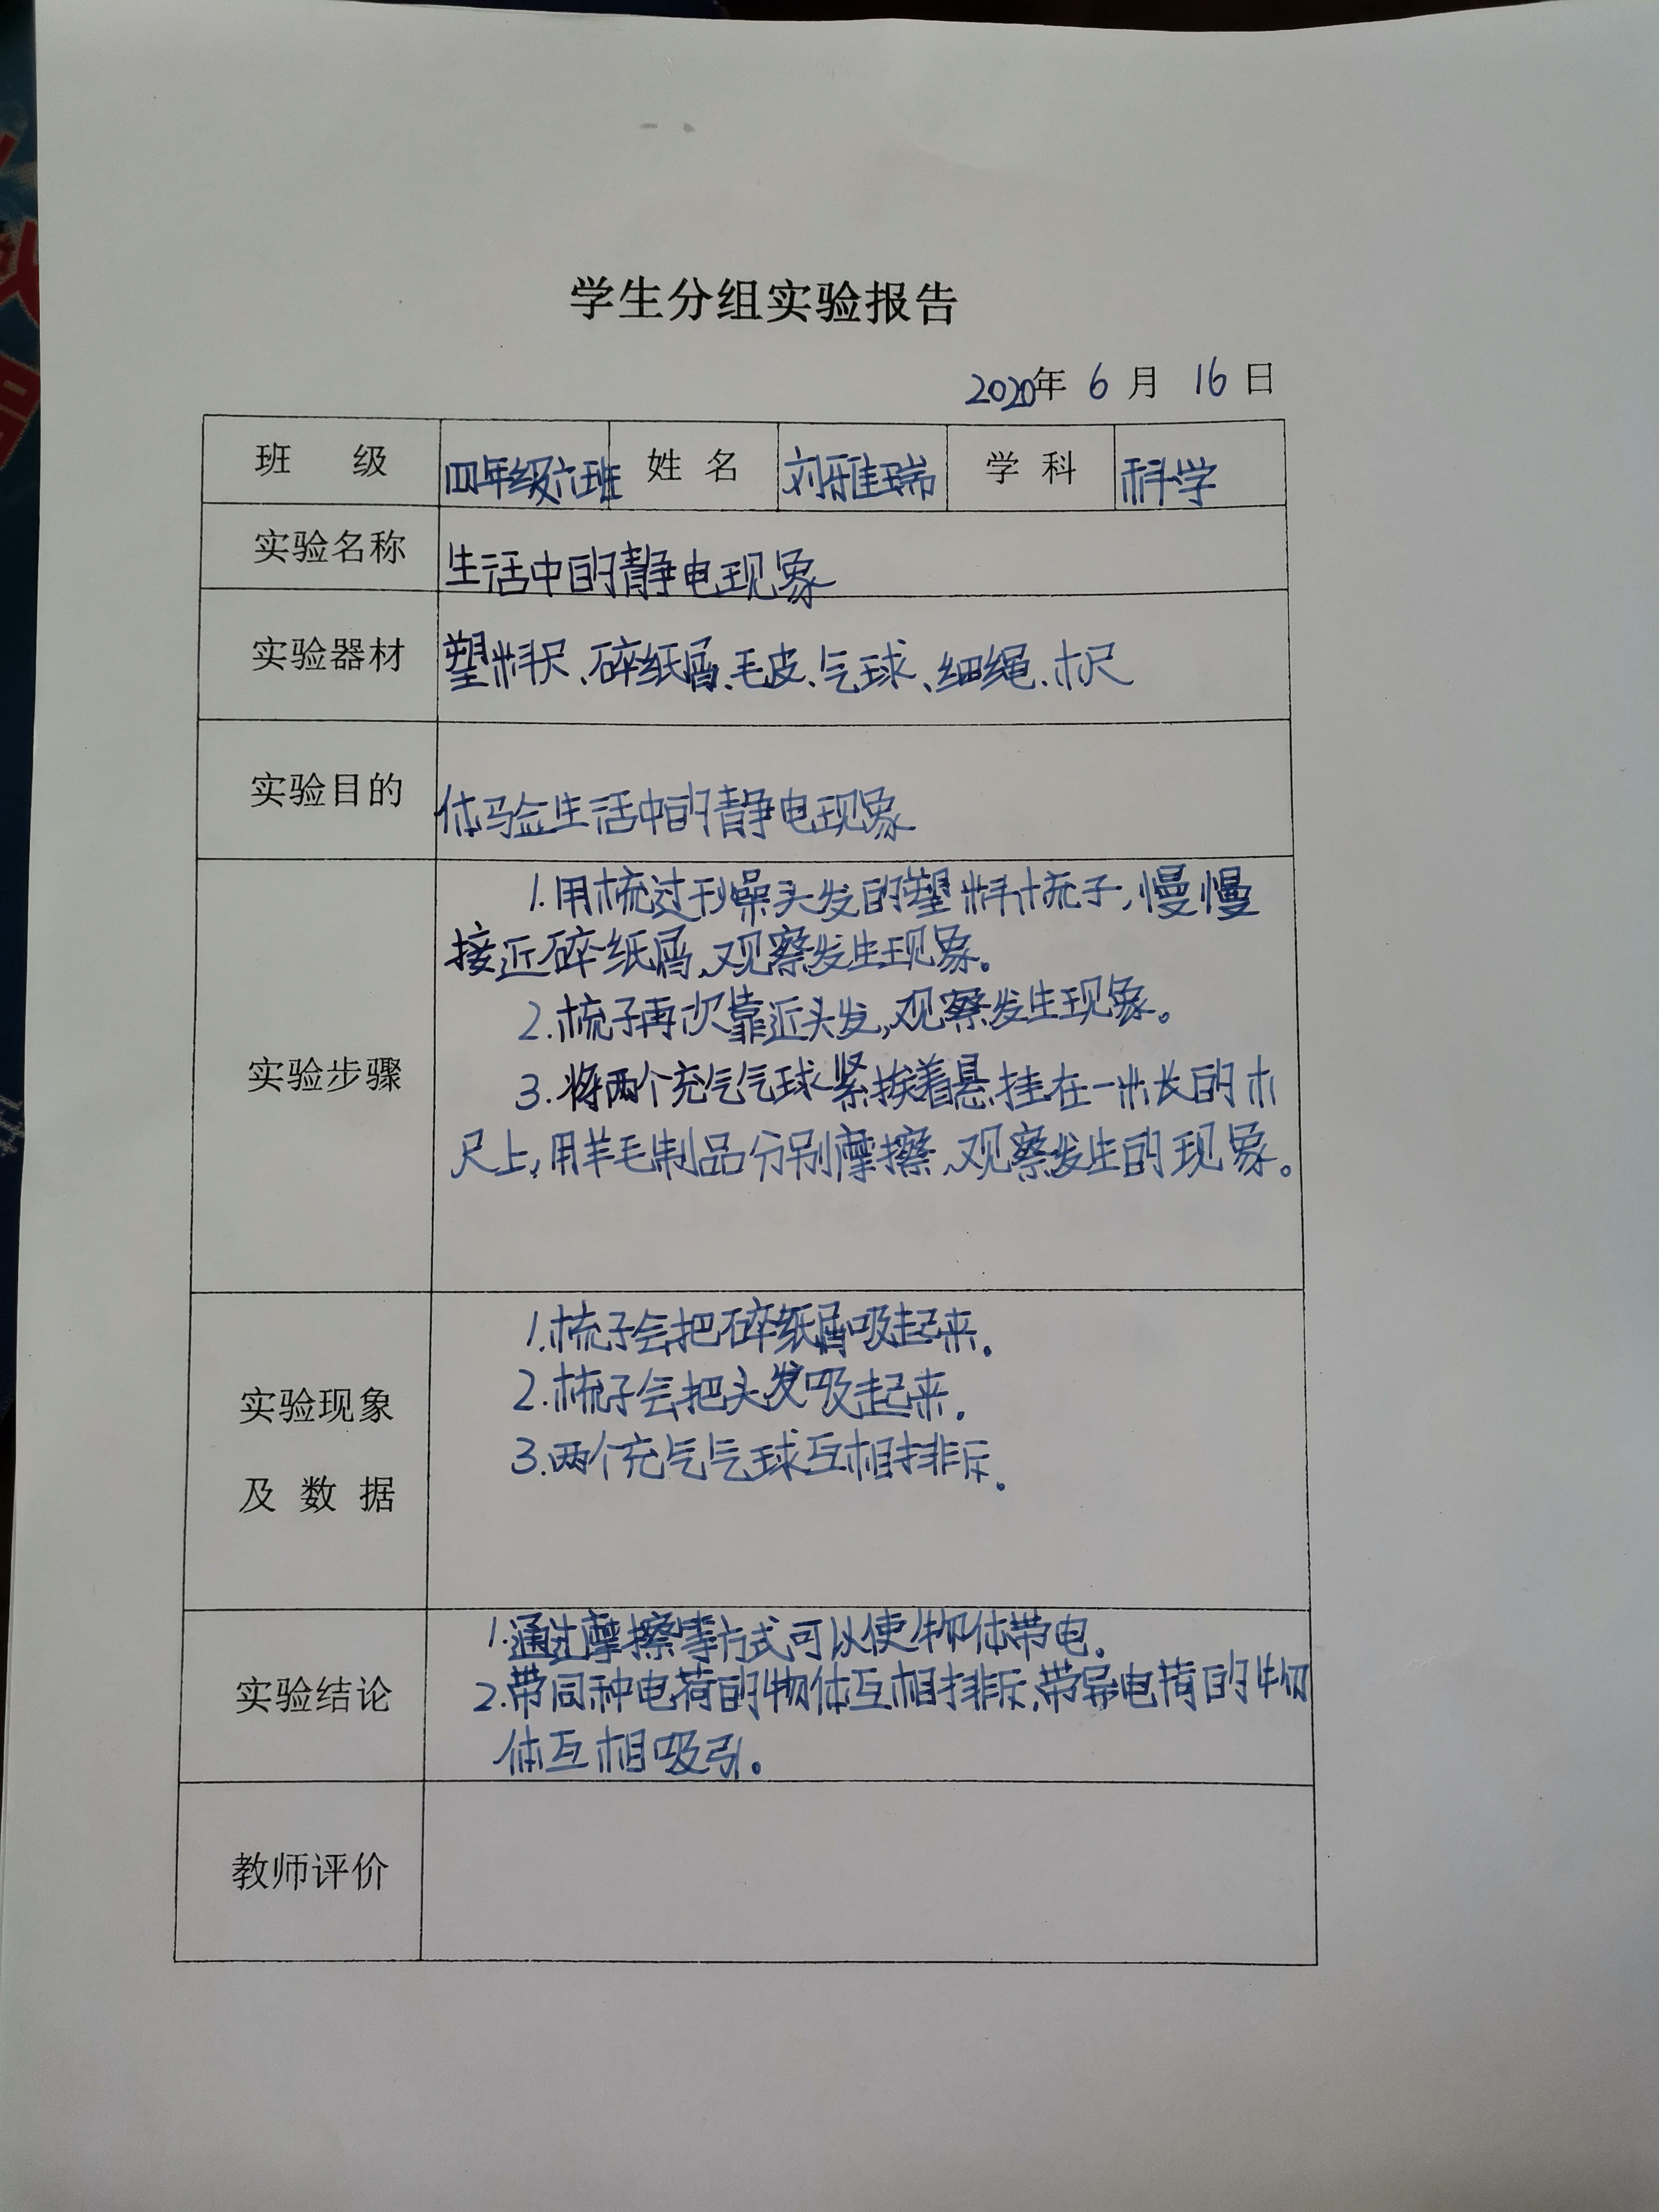 学生分组实验报告
2020年 6 月 16 日
班 级 四年级六班 姓 名 刘雅瑞 学 科 科学
实验名称 生活中的静电现象
实验器材 塑料尺、碎纸屑、毛皮、气球、细绳、木尺
实验目的 体验生活中的静电现象
实验步骤
1.用梳过干燥头发的塑料梳子,慢慢
接近碎纸屑、观察发生现象。
2.梳子再次靠近头发,观察发生现象。
3.将两个充气气球紧挨着悬挂在一米长的木
尺上,用羊毛制品分别摩擦、观察发生的现象。
实验现象
及 数 据
1.梳子会把碎纸屑吸起来。
2.梳子会把头发吸起来。
3.两个充气气球互相排斥。
实验结论
1.通过摩擦等方式可以使物体带电。
2.带同种电荷的物体互相排斥,带异电荷的物
体互相吸引。
教师评价